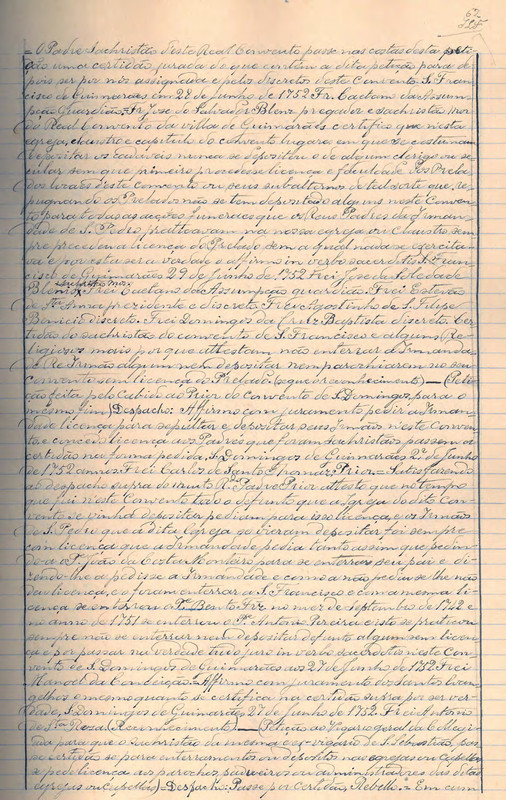 = O Padre Sachristão d'este Real Convento passe nas costas desta peti-
ção uma certidão jurada do que contém a dita petição para de-
pois ser por nós assignada e pelos discretos deste Convento. S. Fran-
cisco de Guimarães em 28 de junho de 1752 Fr. Caetano da Assum-
pção Guardião. Fr José de Salvador Blonz pregador e sachristão mor
do Real Convento da villa de Guimarães certifico que nesta
egreja, claustro e capitulo do convento lugares em que se costumam
depositar os cadaveis nunca se depositou o de algum clerigo ou se-
cular sem que primeiro procedesse licença e faculdade dos Prela-
dos locaes d'este convento ou seus subalternos de tal sorte que, re-
pugnando os Prelados não se tem depositado alguns neste Conven-
to para todas as acções funeraes que os Reus Padres da Irman-
dade de S. Pedro praticavam na nossa egreja ou Claustro sem-
pre precedeu a licença do Prelado sem a qual nada se exercita-
va e por esta ser a verdade o affirmo in verbo sacerdotis S. Fran-
cisco de Guimarães 29 de Junho de 1752 Frei José da Soledade
Sachristão Mor
Frei Caetano da Assumpção guardião. Frei Estevão
de Sta Anna prezidente e discreto. Frei Agostinho de S. Filipe
Benicio discreto. Frei Domingos da Cruz Baptista discreto. Cer-
tidão do sachristão do convento de S. Francisco e alguns Re-
ligiosos mais por que attestam não enterrar a Irmandade
Irmão algum nem depositar nem para orarem no seu
convento sem licença do Prelado (segue o reconhecimento) — (Peti-
ção feita pelo Cabido ao Prior do Convento de S. Domingos para o
mesmo fim) Despacho: Affirmo com juramento pedir a Irman-
dade licença para sepultar e depositar seus Irmãos neste Conven-
to e concedo licença aos Padres que foram sachristães passem as
certidões na forma pedida. S. Domingos de Guimarães 27 de junho
de 1752 annos. Frei Carlos de Santo Thomaz Prior = Satisfazendo
ao despacho supra do muito Rdo Padre Prior attesto que no tempo
que fui neste Convento todo o defunto que á Igreja do dito Con-
vento se vinha depositar pediam para isso licença, e os Irmãos
de S. Pedro que á dita Egreja se vieram depositar foi sempre
com licença que a Irmandade pedia tanto assim que pedin-
do a o P. João da Costa Monteiro para se enterrar seu pai e di-
zendo-lhe a pedisse a Irmandade e como a não pediu se lhe não
deu licença, e o foram enterrar a S. Francisco e com a mesma li-
cença se enterrou o Pe Bento Frz. no mez de septembro de 1742 e
no anno de 1751 se enterrou o Pe Antonio Pereira e isto se praticou
sempre não se enterrar nem depositar defunto algum sem licen-
ça e por passar na verdade tudo juro in verbo sacerdotis neste Con-
vento de S. Domingos de Guimarães aos 27 de Junho de 1752 Frei
Manoel da Conceição = Affirmo com juramento dos Santos Evan-
gelhos o mesmo quanto se certifica na certidão supra por ser ver-
dade, S. Domingos de Guimarães, 27 de Junho de 1752. Frei Antonio
de Sta Rosa (Reconhecimento) — (Petição ao Vigario geral da
para que o sachristão da mesma e o vigario de S. Sebastião, pas-
se certidão se para enterramentos ou depositos nas egrejas ou capellas
se pede licença aos parochos, padroeiros ou administradores das ditas
egrejas ou capellas) Despacho: Passe por Certidão, Rebello = Em cum